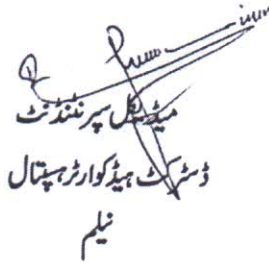 میڈیکل سپرنٹنڈنٹ
ڈسٹرکٹ ہیڈکوارٹر ہسپتال
نیلم